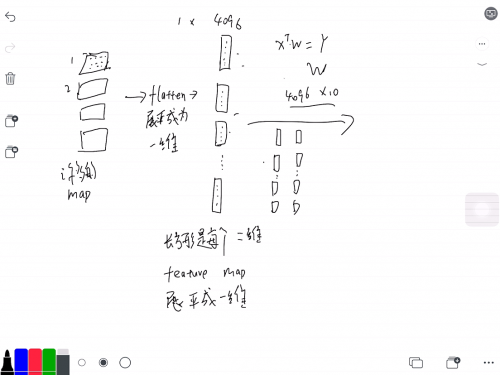 1 × 4096
xᵀW = Y
W
4096 × 10
1
2
→ flatten →
展平成为
一维
map
长方形是每个二维
feature map
展平成一维